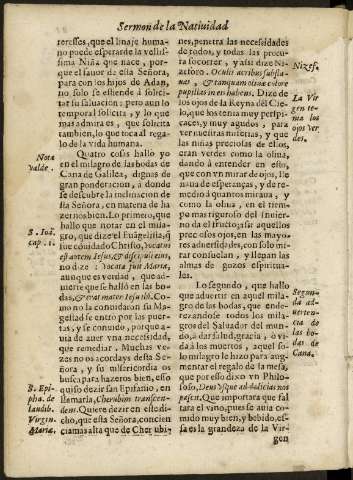 Sermon de la Natiuidad
teresses, que el linaje humano
puede esperar de la bellissima
Niña que nace, porque
el fauor de esta Señora,
para con los hijos de Adan,
no solo se estiende à solicitar
su saluacion: pero aun lo
temporal solicita, y lo que
mas admira es, que solicita
tambien, lo que toca al regalo
de la vida humana.
Nota
valde.
Quatro cosas hallo yo
en el milagro de las bodas de
Cana de Galilea, dignas de
gran ponderacion, a donde
se descubre la inclinacion de
esta Señora, en materia de hazernos
bien. Lo primero, que
hallo que notar en el milagro,
que dize el Euãgelista, q̃
S. Ioã.
cap. 2.
fue cõuidado Christo, vocatus
est autem Iesus, & discipuli eius,
no dize: vocata fuit Maria,
aunque es verdad, que aduierte
que se hallò en las bodas,
& erat mater Iesu ibi. Como
no la conuidaron su Magestad
se entrò por las puertas,
y se conuido, porque auia
de auer vna necessidad,
que remediar. Muchas vezes
no os acordays desta Señora,
y su misericordia os
busca para hazeros bien, esso
S. Epipha.
de
laudib.
Virgin.
Mariæ.
quiso dezir san Epifanio, en
llamarla, Cherubim transcendem.
Quiere dezir en este dicho,
que esta Señora, con ciencia
mas alta que de Cherubines,
penetra las necessidades
de todos, y todas las procura
socorrer, y assi dize Nizeforo.
Nizef.
Oculis acribus subflauat,
& tanquam oliuæ colore
pupillas in eis habens. Dize de
La Virgen
tema
los
ojos verdes.
los ojos de la Reyna del Cielo,
que los tenia muy perspicaces,
y muy agudos, para
ver nuestras miserias, y que
las niñas preciosas de ellos,
eran verdes como la oliua,
dando à entender en esto,
que con vn mirar de ojos, llenaua
de esperanças, y de remedio
à quantos miraua, y
como la oliua, en el tiempo
mas riguroso del inuierno
da el fructo, q̃ assi aquellos
preciosos ojos, en las mayores
aduersidades, con solo mirar
consuelan, y llenan las
almas de gozos espirituales.
Lo segundo, que hallo
Segunda
aduertencia
de
las bodas
de
Cana.
que aduertir en aquel milagro
de las bodas, que endereçandose
todos los milagros
del Saluador del mundo,
a dar salud à gracia, o vida
à los muertos, aquel solo
milagro le hizo para augmentar
el regalo de la mesa,
que por esso dixo vn Philosofo,
Deus vsque ad delicias nos
pascit. Que importara que faltara
el vino, pues se auia comido
muy bien, y bebido, essa
es la grandeza de la Virgen